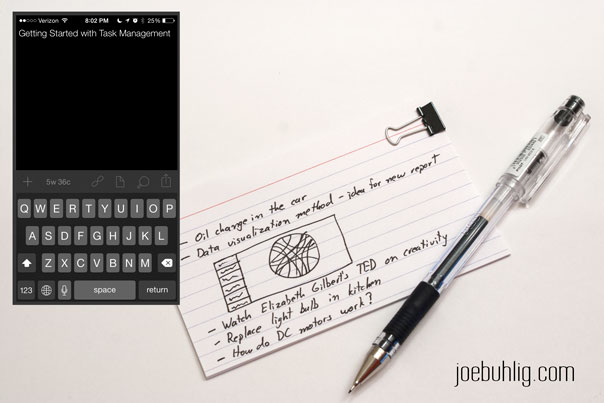 ●●○○○ Verizon 8:02 PM 25%
Getting Started with Task Management
+ 5w 36c
Q W E R T Y U I O P
A S D F G H J K L
Z X C V B N M
123 space return
- Oil change in the car
- Data visualization method - idea for new report
- Watch Elizabeth Gilbert's TED on creativity
- Replace light bulb in kitchen
- How do DC motors work?
joebuhlig.com